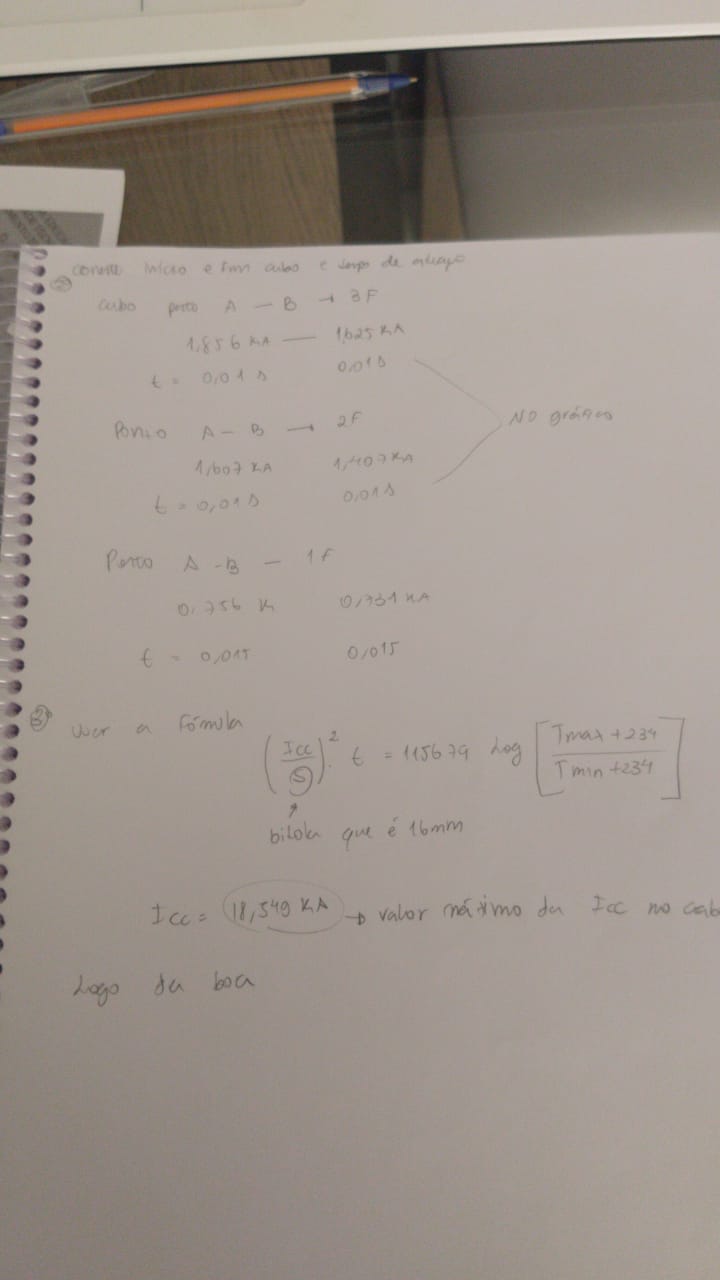 corrente início e fim cabo e tempo de atuação
② Cabo ponto A — B → 3F
1,856 KA — 1,625 KA
t = 0,01 s 0,01 s
Ponto A — B → 2F
1,607 KA 1,407 KA
t = 0,01 s 0,01 s
No gráfico
Ponto A - B — 1F
0,756 K 0,731 KA
t = 0,01s 0,01s
③ Usar a Fórmula
(Icc/S)². t = 115679 Log [Tmax + 234 / Tmin + 234]
bitola que é 16mm
Icc = 18,549 KA → valor máximo da Icc no cab
Logo da boa